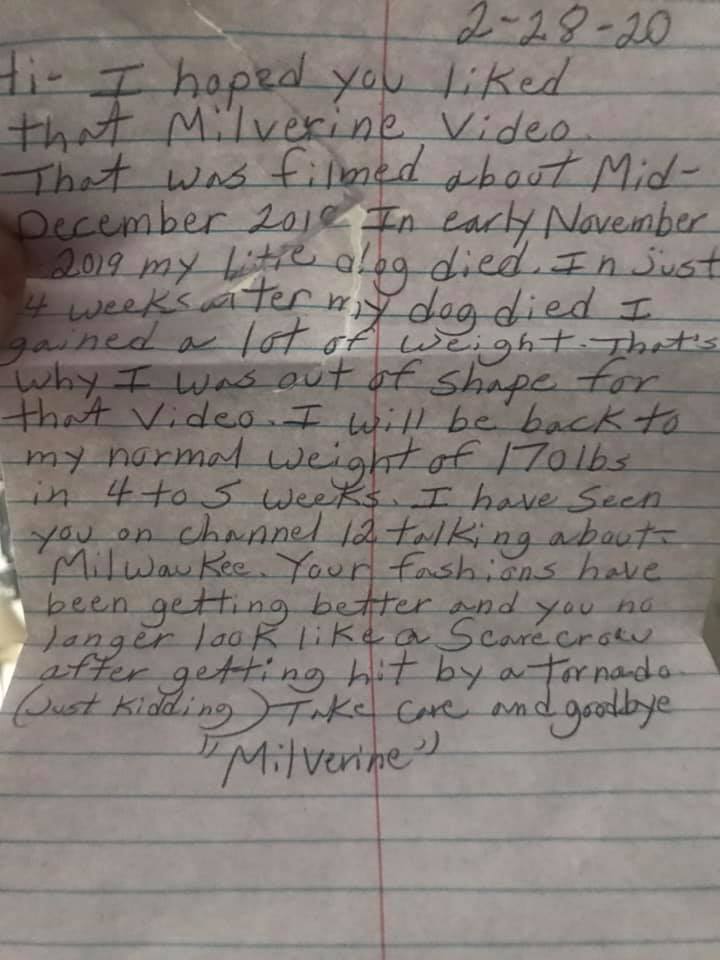 2-28-20
Hi- I hoped you liked
that Milverine Video.
That was filmed about Mid-
December 2019 In early November
2019 my litte dog died. In just
4 weeks after my dog died I
gained a lot of weight. That's
why I was out of shape for
that Video. I will be back to
my normal weight of 170 lbs
in 4 to 5 weeks. I have seen
you on channel 12 talking about-
Milwaukee. Your fashions have
been getting better and you no
longer look like a Scarecrow
after getting hit by a tornado.
(Just Kidding) Take care and goodbye
"Milverine"